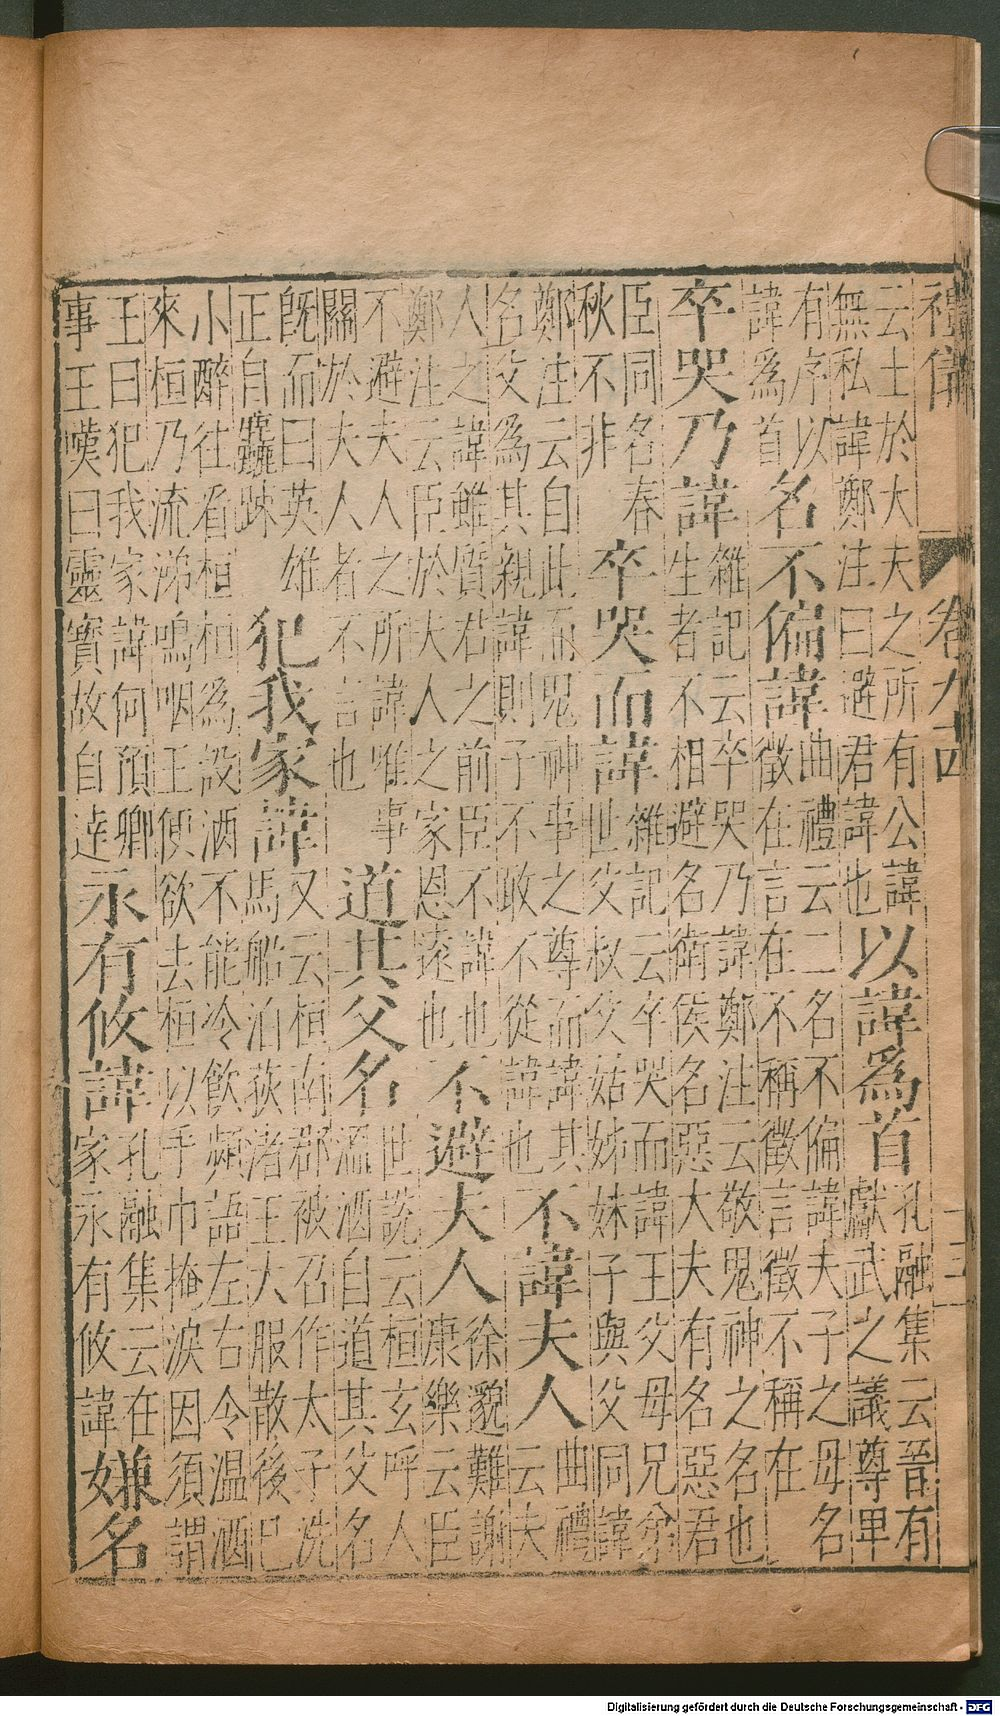 禮儀 卷九十四 三
云士於大夫之所有公諱
無私諱鄭注曰避君諱也
以諱爲首
孔融集云晉有
獻武之議尊卑
有序以
諱爲首
名不偏諱
曲禮云二名不偏諱夫子之母名
徵在言在不稱徵言徵不稱在
卒哭乃諱
雜記云卒哭乃諱鄭注云敬鬼神之名也
生者不相避名衛侯名惡大夫有名惡君
臣同名春
秋不非
卒哭而諱
雜記云卒哭而諱王父母兄弟
世父叔父姑姊妹子與父同諱
鄭注云自此而鬼神事之尊而諱其
名父爲其親諱則子不敢不從諱也
不諱夫人
曲禮
云夫
人之諱雖質君之前臣不諱也
鄭注云臣於夫人之家恩遠也
不避夫人
徐邈難謝
康樂云臣
不避夫人之所諱唯事
關於夫人者不言也
道其父名
世說云桓玄呼人
溫酒自道其父名
既而曰英雄
正自麤疎
犯我家諱
又云桓南郡被召作太子洗
馬船泊荻渚王大服散後已
小醉往看桓桓爲設酒不能冷飲頻語左右令温酒
來桓乃流涕嗚咽王便欲去桓以手巾掩淚因須謂
王曰犯我家諱何預卿
事王嘆曰靈寶故自達
永有攸諱
孔融集云在
家永有攸諱
嫌名
Digitalisierung gefördert durch die Deutsche Forschungsgemeinschaft - DFG